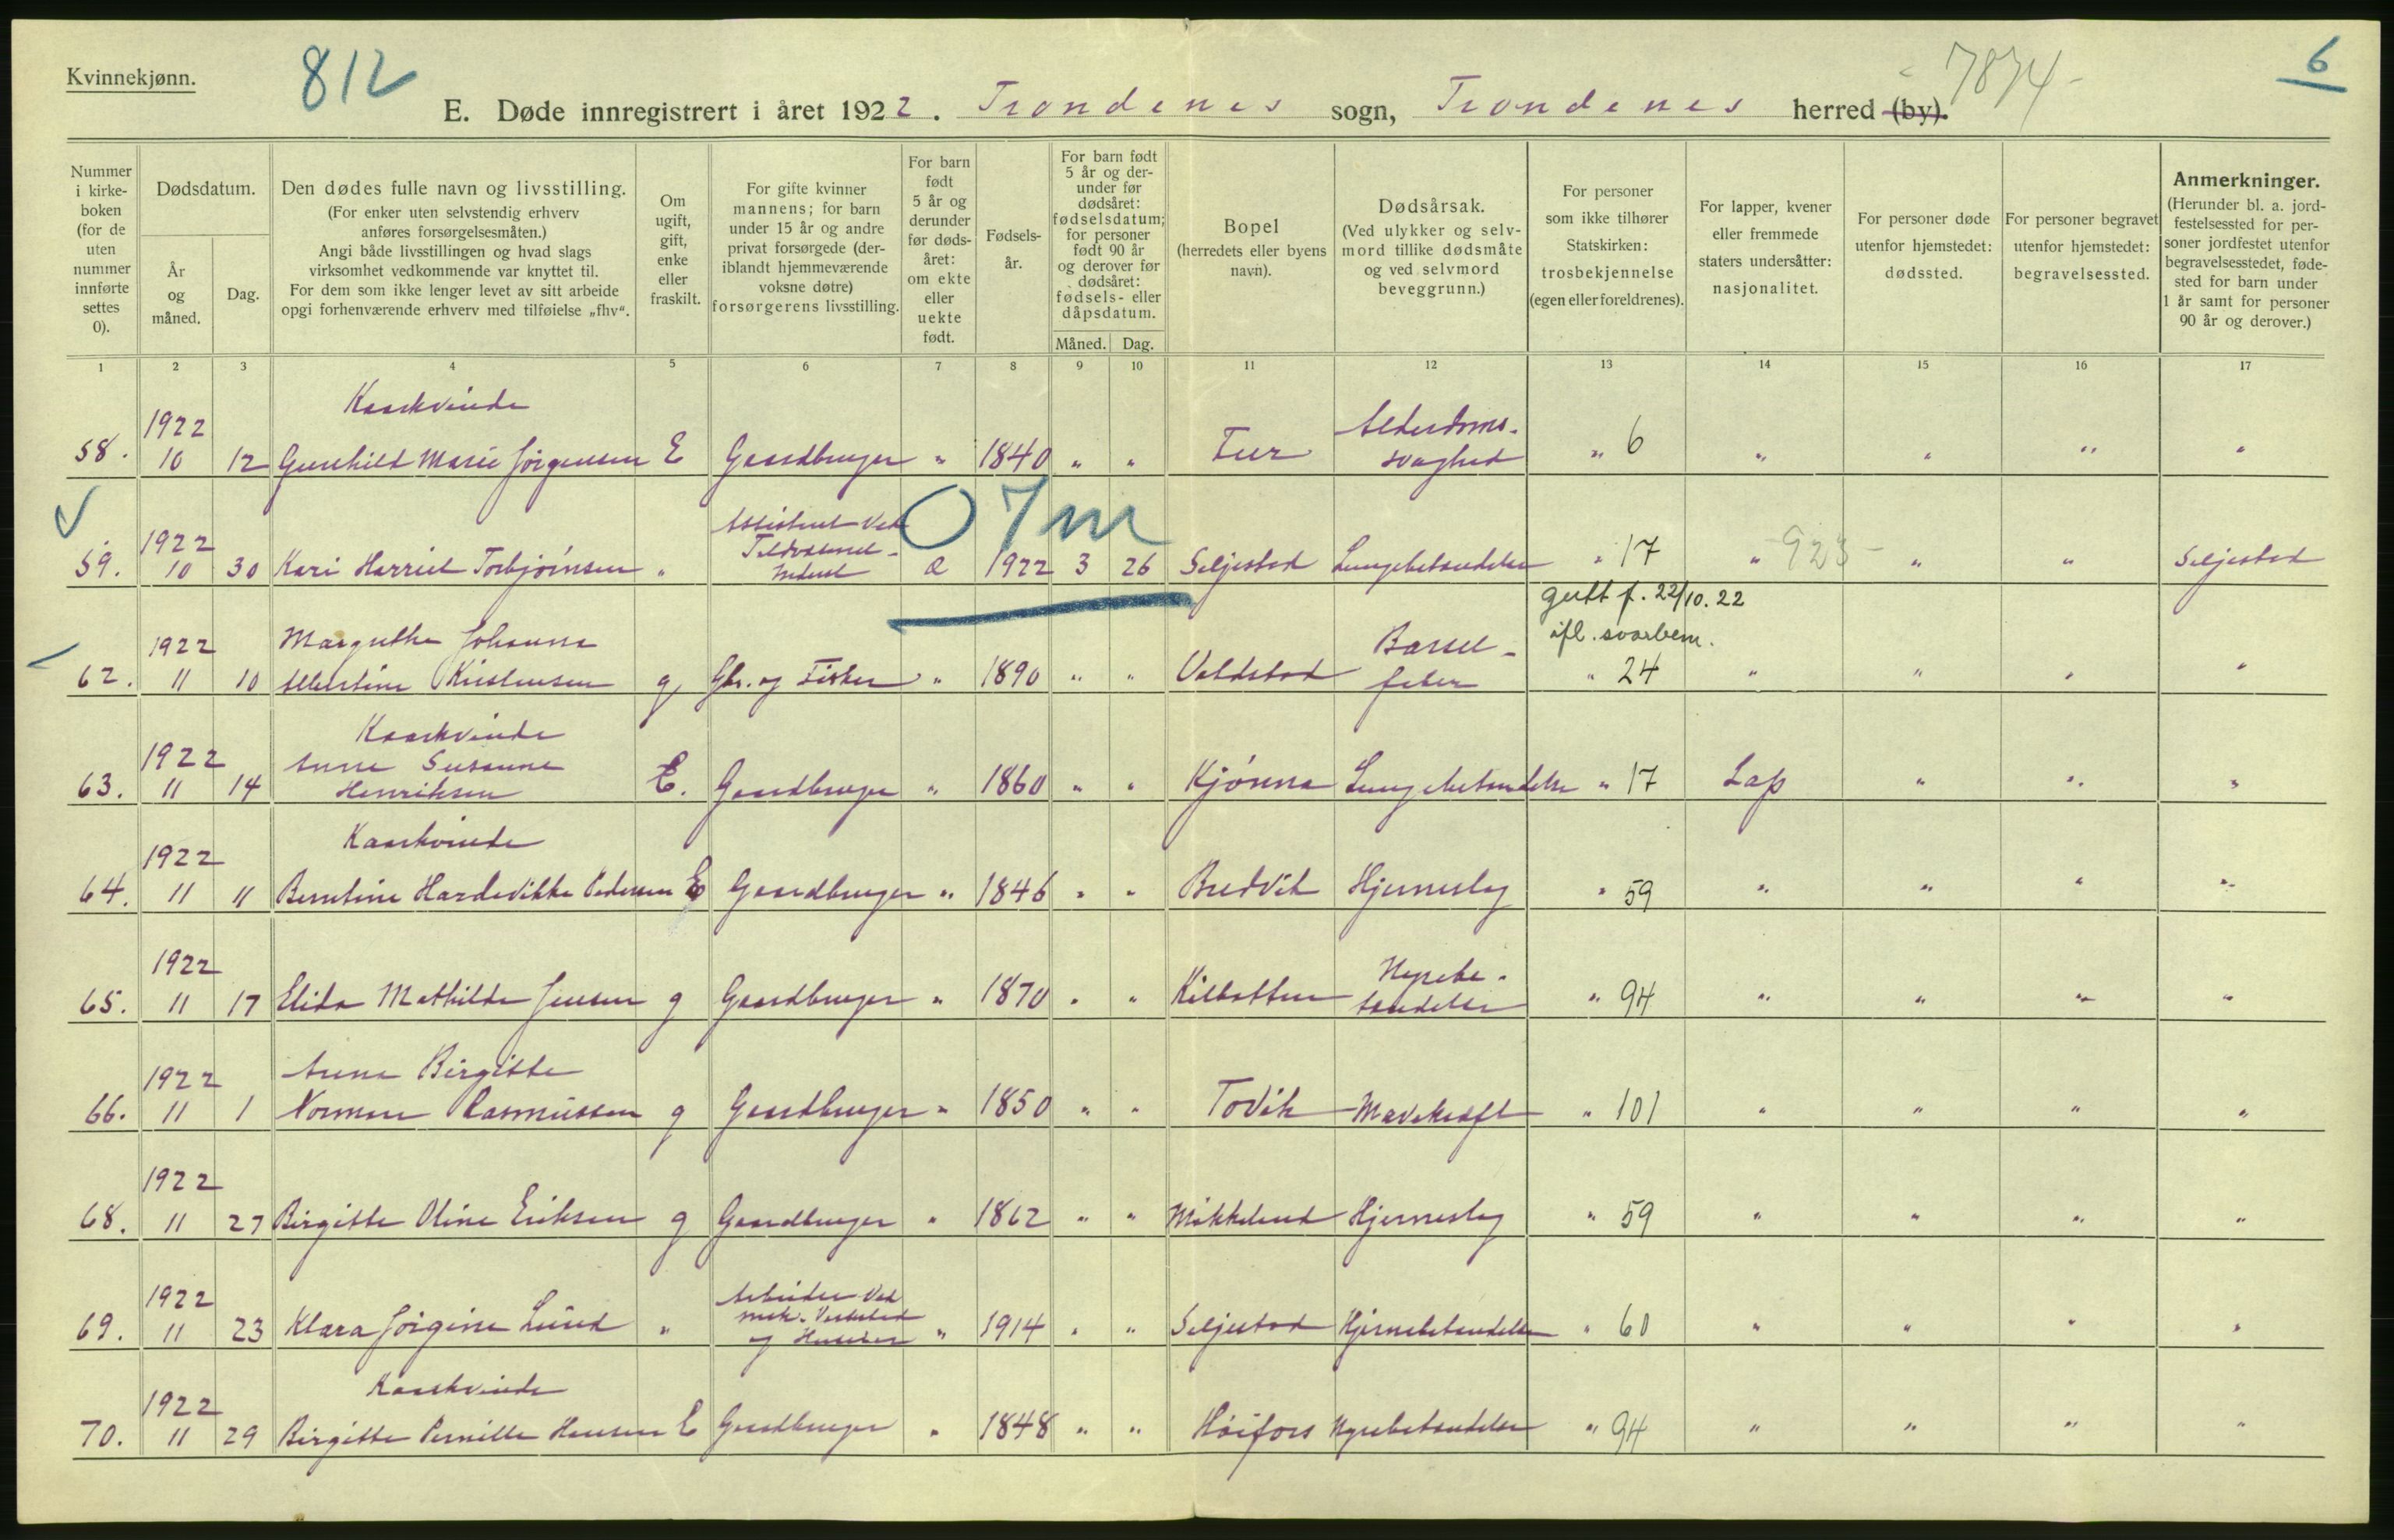 Kvinnekjønn.
812
7874
6
E. Døde innregistrert i året 1922. Trondenes sogn, Trondenes herred (by).
Nummer i kirkeboken (for de uten nummer innførte settes 0).
Dødsdatum.
År og måned.
Dag.
Den dødes fulle navn og livsstilling.
(For enker uten selvstendig erhverv
anføres forsørgelsesmåten.)
Angi både livsstillingen og hvad slags
virksomhet vedkommende var knyttet til.
For dem som ikke lenger levet av sitt arbeide
opgi forhenværende erhverv med tilføielse „fhv“.
Om
ugift,
gift,
enke
eller
fraskilt.
For gifte kvinner
mannens; for barn
under 15 år og andre
privat forsørgede (der-
iblandt hjemmeværende
voksne døtre)
forsørgerens livsstilling.
For barn
født
5 år og
derunder
før døds-
året:
om ekte
eller
uekte
født.
Fødsels-
år.
For barn født
5 år og der-
under før
dødsåret:
fødselsdatum;
for personer
født 90 år
og derover før
dødsåret:
fødsels- eller
dåpsdatum.
Måned. Dag.
Bopel
(herredets eller byens
navn).
Dødsårsak.
(Ved ulykker og selv-
mord tillike dødsmåte
og ved selvmord
beveggrunn.)
For personer
som ikke tilhører
Statskirken:
trosbekjennelse
(egen eller foreldrenes).
For lapper, kvener
eller fremmede
staters undersåtter:
nasjonalitet.
For personer døde
utenfor hjemstedet:
dødssted.
For personer begravet
utenfor hjemstedet:
begravelsessted.
Anmerkninger.
(Herunder bl. a. jord-
festelsessted for per-
soner jordfestet utenfor
begravelsesstedet, føde-
sted for barn under
1 år samt for personer
90 år og derover.)
1 2 3 4 5 6 7 8 9 10 11 12 13 14 15 16 17
Kaarkvinde
1922 Alderdoms-
58. 10 12 Gunhild Marie Jørgensen E Gaardbruger " 1840 " " svaghed " 6 " " " "
07m
1922 Assistent ved
59. 10 30 Kari Harriet Torbjørnsen " e 1922 3 26 Seljestad Lungebetændelse " 17 " 923 " " Seljestad
gutt f. 22/10.22
ifl. svarbem.
1922 Margrethe Johanna Barsel-
62. 11 10 Albertine Kristensen g Gbr. og Fisker " 1890 " " Voldstad feber " 24 " " " "
Kaarkvinde
1922 Anne Susanne
63. 11 14 Henriksen E. Gaardbruger " 1860 " " Kjønna Lungebetændelse " 17 Lap " " "
Kaarkvinde
1922
64. 11 11 Berntine Hardevikke Pedersen E Gaardbruger " 1846 " " Bredvik Hjerneslag " 59 " " " "
1922 Nyrebe-
65. 11 17 Elida Mathilde Jensen g Gaardbruger " 1870 " " Kilbotten tændelse " 94 " " " "
1922 Anne Birgitte
66. 11 1 Normann Rasmussen g Gaardbruger " 1850 " " Tovik Mavekræft " 101 " " " "
1922
68. 11 27 Birgitte Oline Eriksen g Gaardbruger " 1862 " " Mikkelund Hjerneslag " 59 " " " "
1922 Arbeider ved
mek. Verksted
69. 11 23 Klara Jørgine Lund " og Huseier " 1914 " " Seljestad Hjernebetændelse " 60 " " " "
Kaarkvinde
1922
70. 11 29 Birgitte Pernille Hansen E Gaardbruger " 1848 " " Høifors Nyrebetændelse " 94 " " " "